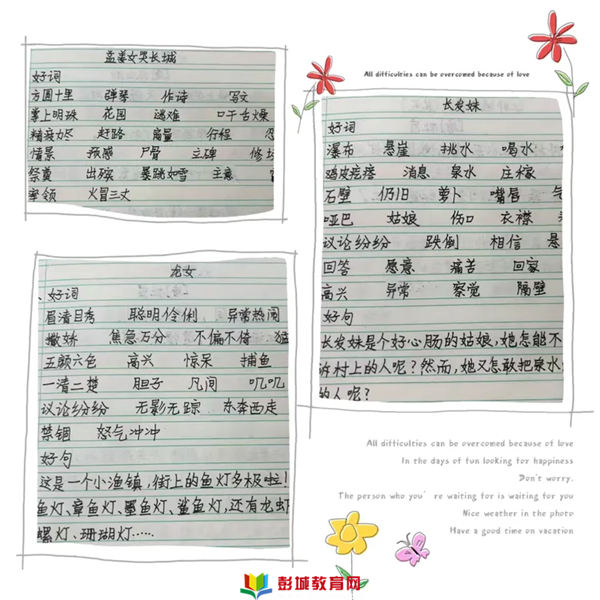 孟姜女哭长城
好词
方圆十里 弹琴 作诗 写文
掌上明珠 花园 逃难 口干舌燥
精疲力尽 赶路 商量 行程
情景 预感 尸骨 立碑 修坟
祭奠 出殡 暴跳如雷 主意
率领 火冒三丈
All difficulties can be overcomed because of love
长发妹
好词
瀑布 悬崖 挑水 喝水
鸡皮疙瘩 消息 泉水 庄稼
石壁 仍旧 萝卜 嘴唇
哑巴 姑娘 伤口 衣襟
议论纷纷 跌倒 相信
回答 愿意 痛苦 回家
高兴 异常 察觉 隔壁
好句
长发妹是个好心肠的姑娘,她怎能不
诉村上的人呢?然而,她又怎敢把泉水
的人呢?
龙女
、好词
眉清目秀 聪明伶俐, 异常热闹
撒娇 焦急万分 不偏不倚 猛
五颜六色 高兴 惊呆 捕鱼
一清二楚 胆子 凡间 叽叽
议论纷纷 无影无踪 东奔西走
禁锢 怒气冲冲
好句
这是一个小渔镇,街上的鱼灯多极啦!
鱼灯、章鱼灯、墨鱼灯、鲨鱼灯,还有龙虾
螺灯、珊瑚灯……
All difficulties can be overcomed because of love
In the days of fun looking for happiness
Don't worry.
The person who you're waiting for is waiting for you
Nice weather in the photo
Have a good time on vacation
彭城教育网